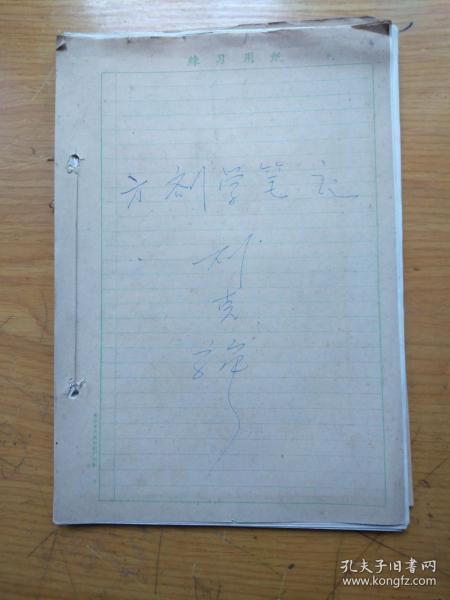 練习用紙
方剂学笔记
刘
克
孔夫子旧书网
www.kongfz.com